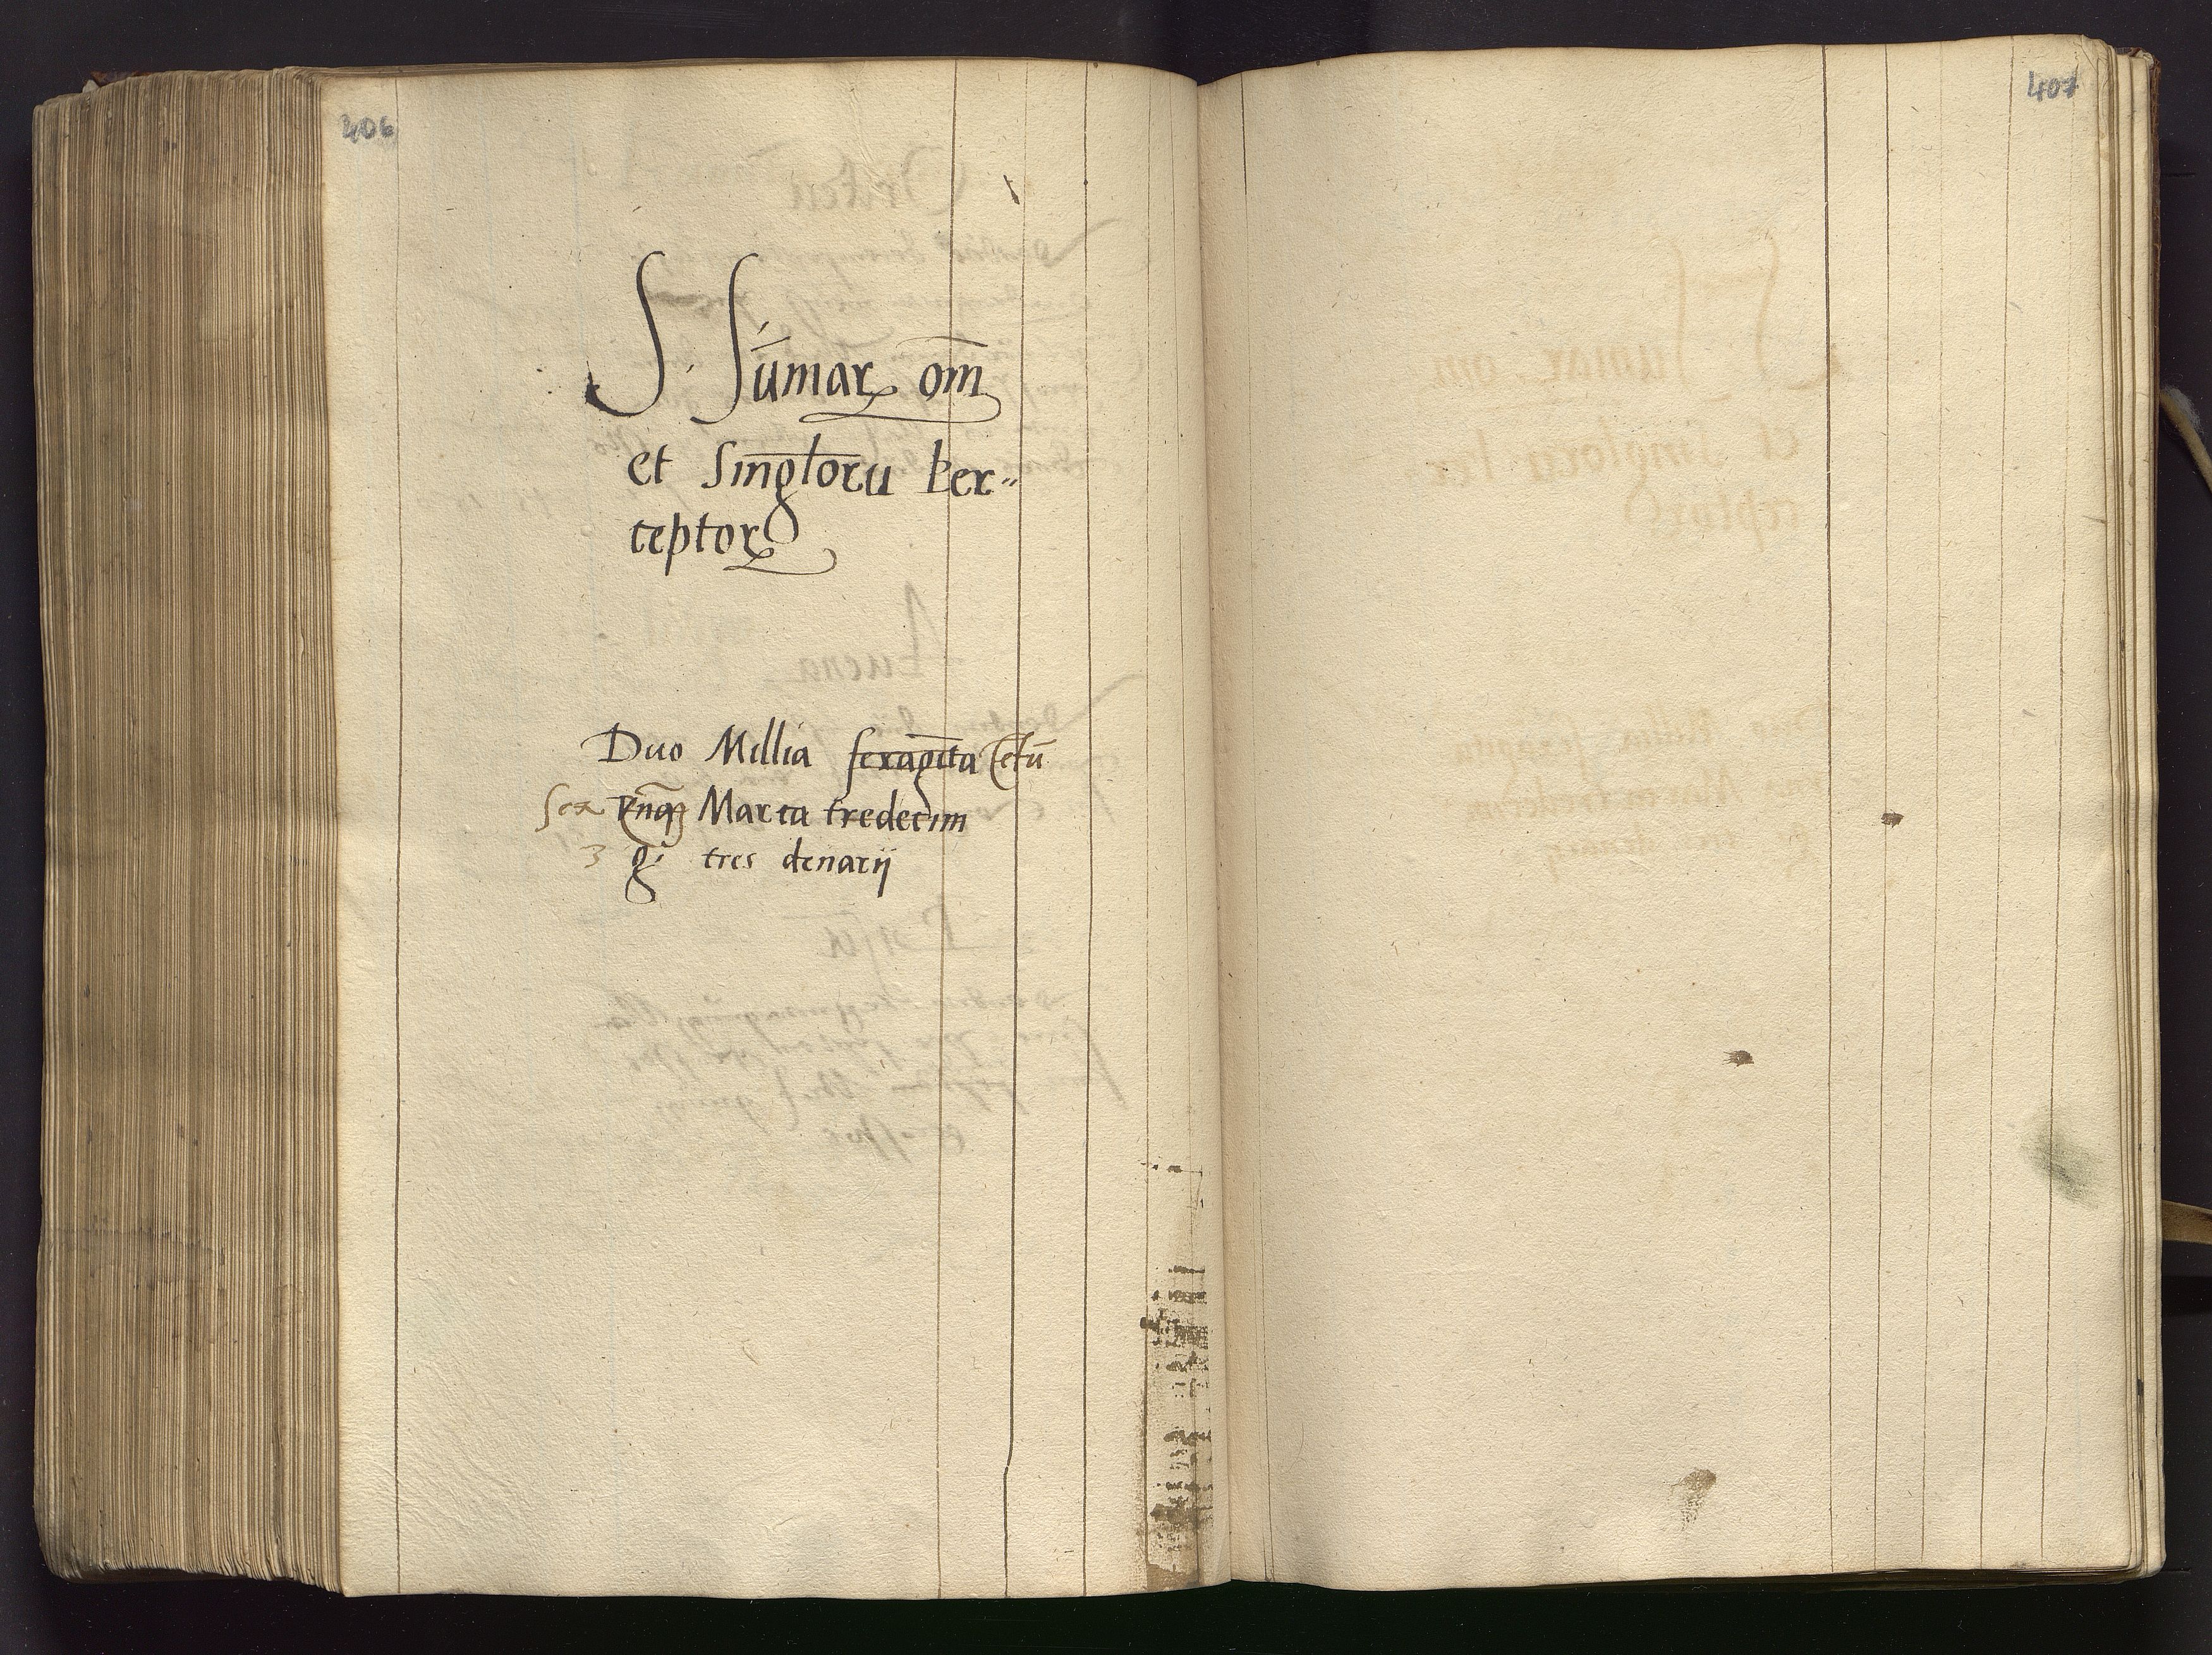 406
S. Sūmarꝝ om̄
et Singlorū per=
ceptorꝝ
Duo Millia sexagīta Cētū
Sex qnqꝫ Marca tredecim
3 g. tres denarij
407